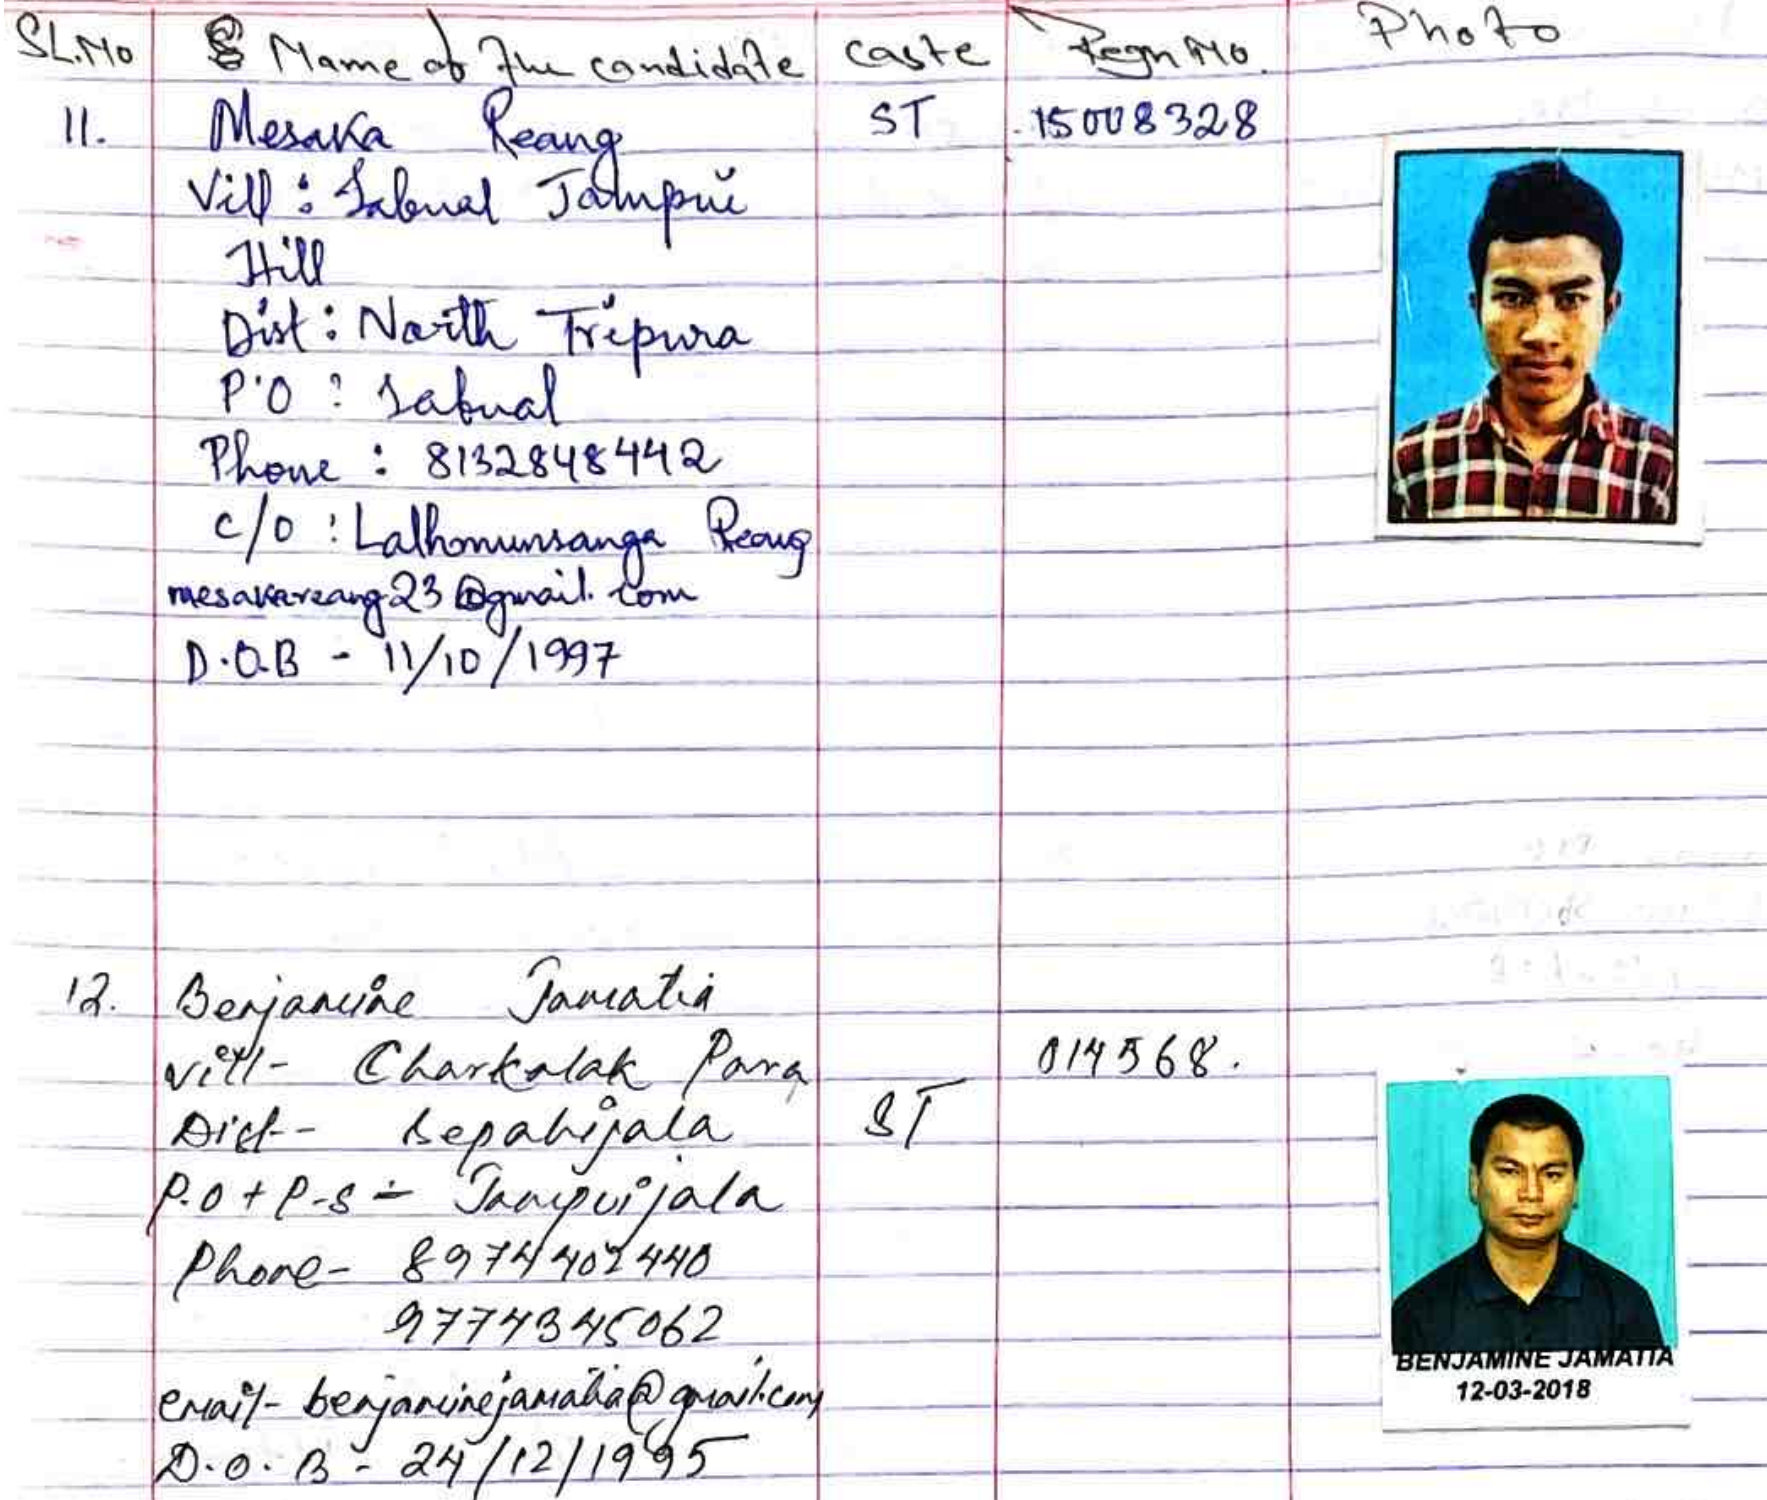 SL.No Name of the candidate caste Regn No. Photo
11. Mesaka Reang ST 15008328
Vill : Sabual Jampui
Hill
Dist : North Tripura
P.O : Sabual
Phone : 8132848442
c/o : Lalhomunsanga Reang
mesakareang23@gmail.com
D.O.B - 11/10/1997
12. Benjamine Jamatia
vill- Charkalak Para 014568.
Dist- Sepahijala ST
P.O + P.S - Jampuijala
Phone- 8974402440
9774345062
email- benjaminejamatia@gmail.com
D.O.B - 24/12/1995
BENJAMINE JAMATIA
12-03-2018